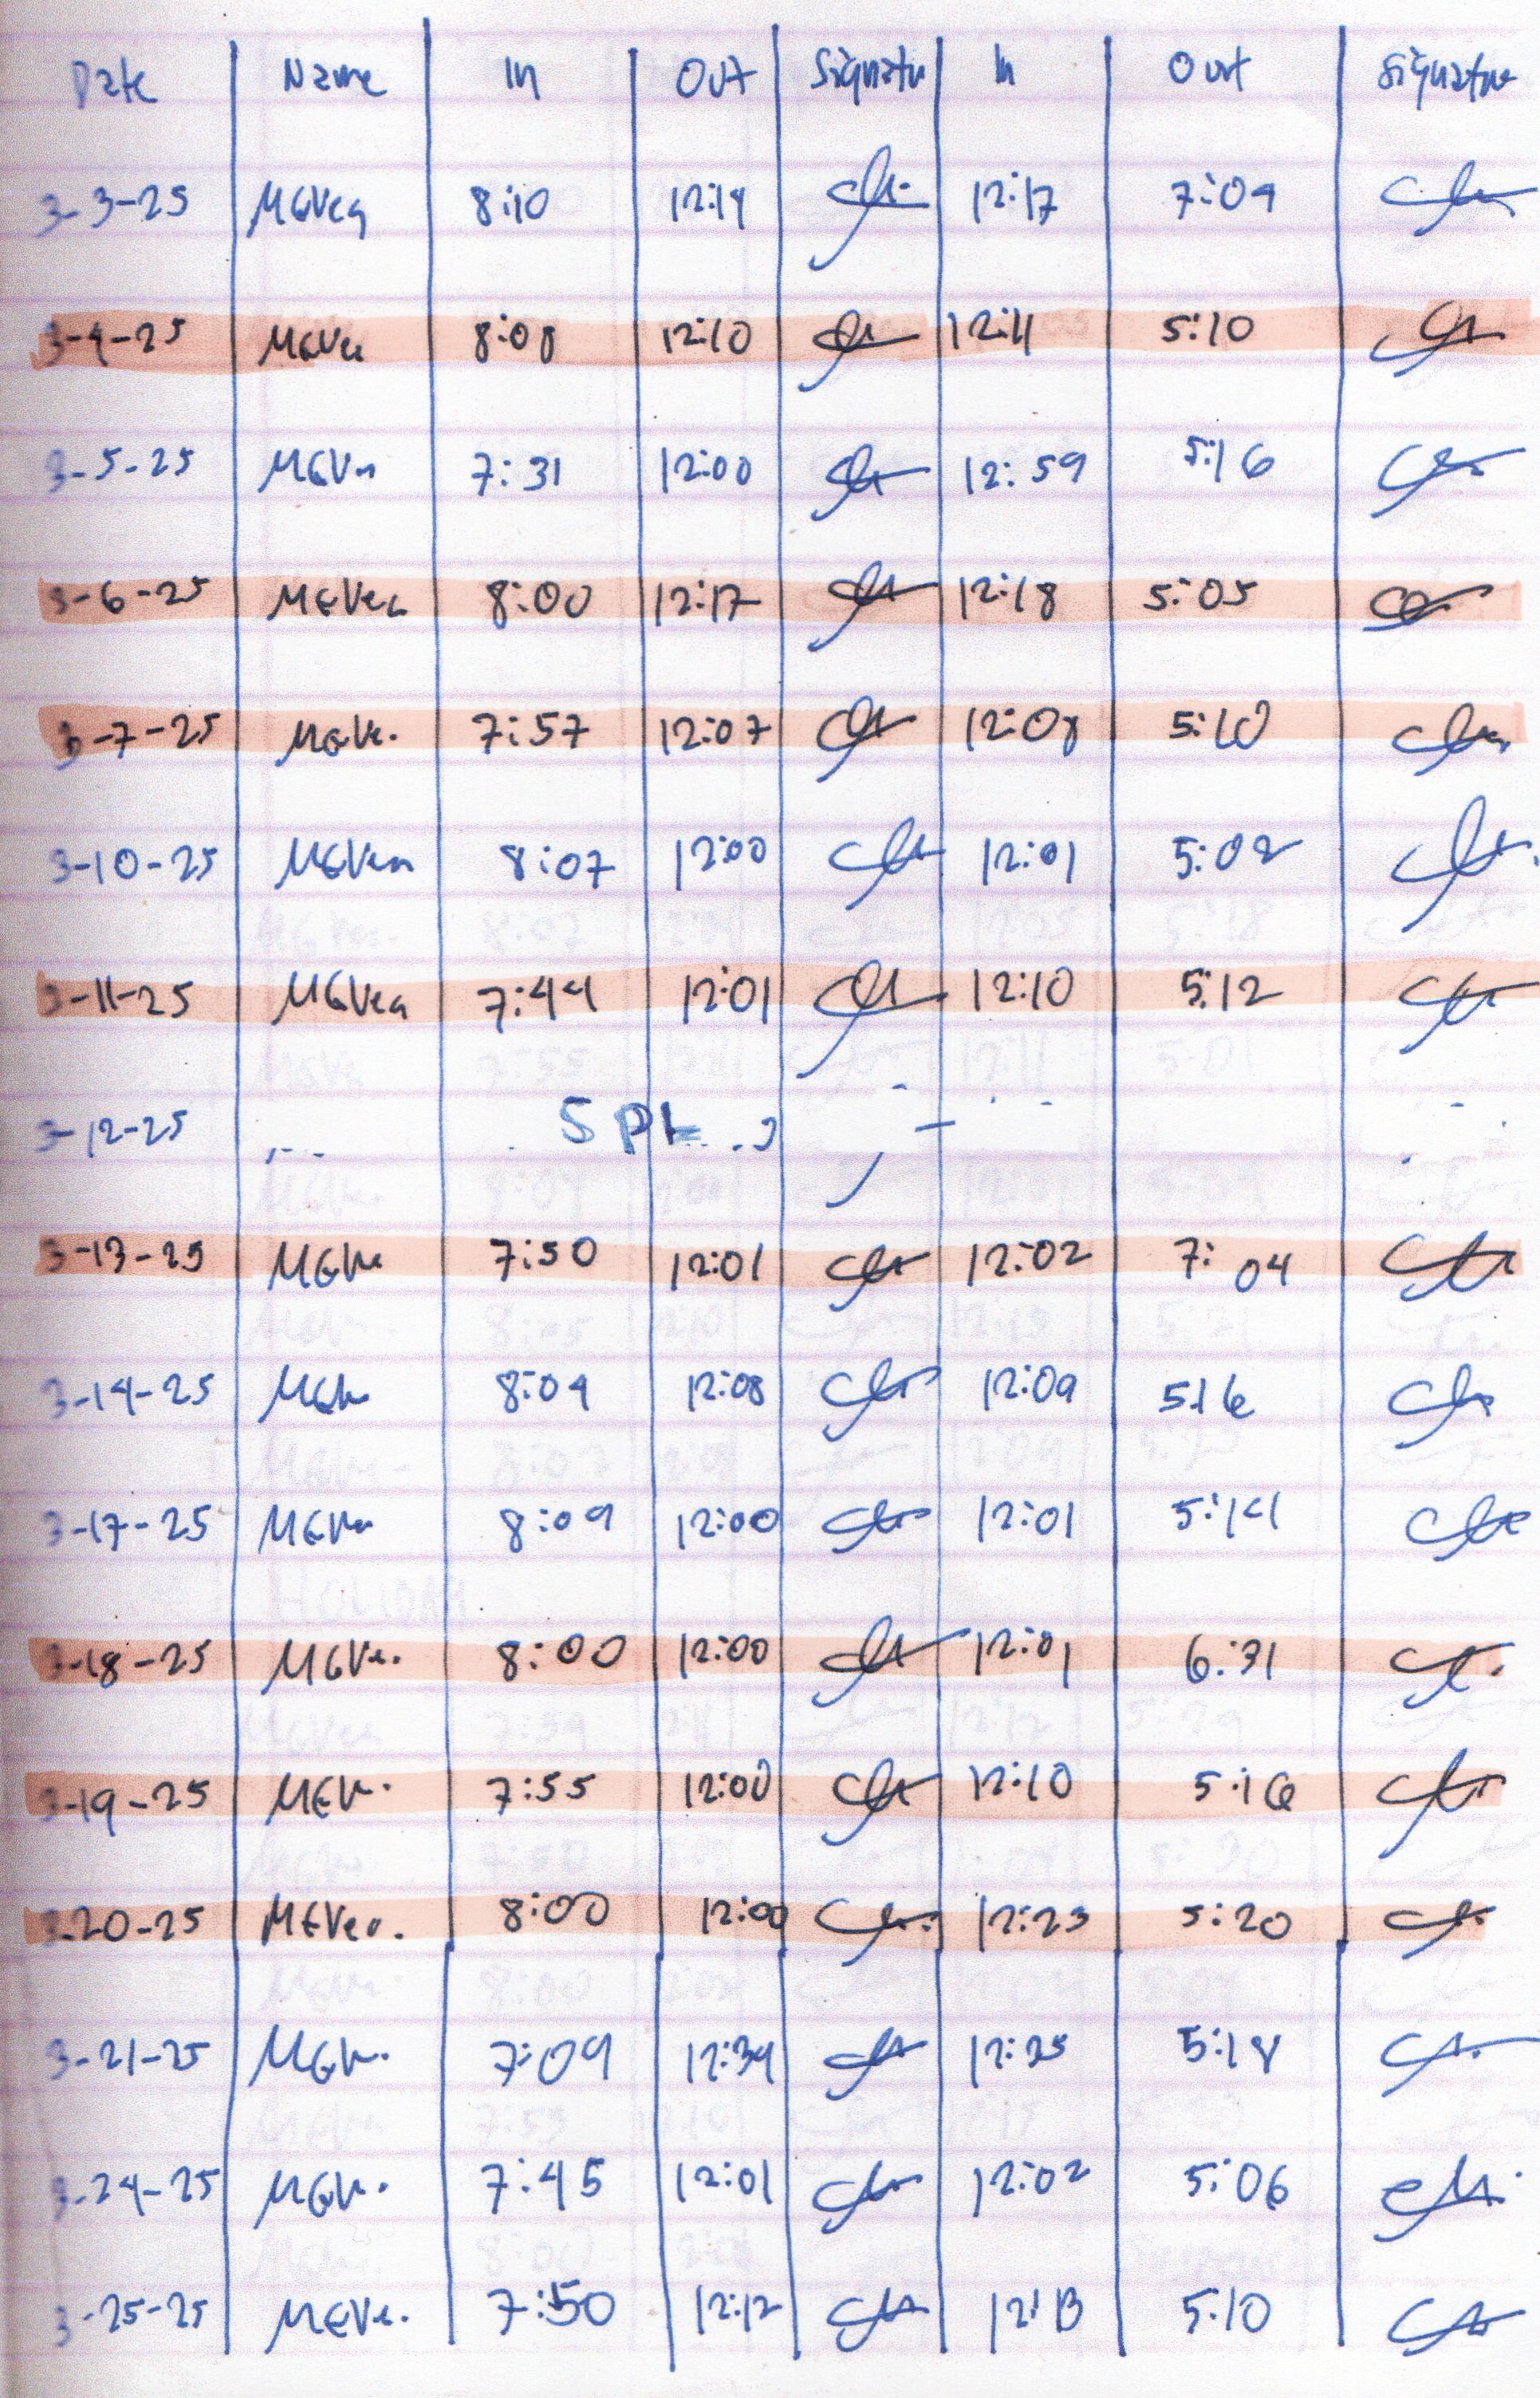 Date Name In Out Signatu In Out Signatue
3-3-25 MGVeg 8:10 12:14 12:17 7:09
3-4-25 MGVe 8:08 12:10 12:11 5:10
3-5-25 MGVe 7:31 12:00 12:59 5:16
3-6-25 MGVeg 8:00 12:17 12:18 5:05
3-7-25 MGVe. 7:57 12:07 12:08 5:10
3-10-25 MGVeg 8:07 12:00 12:01 5:02
3-11-25 MGVeg 7:44 12:01 12:10 5:12
3-12-25 SPL
3-13-25 MGVe 7:50 12:01 12:02 7:04
3-14-25 MGVe 8:09 12:08 12:09 516
3-17-25 MGVe 8:09 12:00 12:01 5:14
3-18-25 MGVe. 8:00 12:00 12:01 6:31
3-19-25 MGVe. 7:55 12:00 12:10 5:16
3-20-25 MGVeg. 8:00 12:00 12:23 5:20
3-21-25 MGVe. 7:09 12:34 12:35 5:18
3-24-25 MGVe. 7:45 12:01 12:02 5:06
3-25-25 MGVe. 7:50 12:12 12:13 5:10